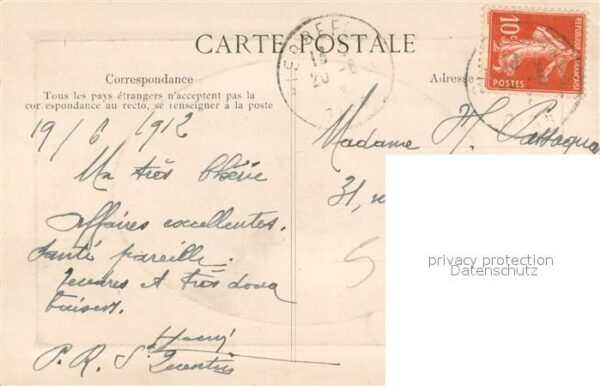 CARTE POSTALE
Correspondance
Tous les pays étrangers n'acceptent pas la
cor espondance au recto, se renseigner à la poste
Adresse
10c
REPUBLIQUE
FRANÇAISE
POSTES
PIERREF
19
20 -6
19/6 1912
Ma très Chérie
Affaires excellentes.
Santé pareille.
Tendres et très doux
baisers.
Henri
P. R. St Quentin
Madame H.
31,
privacy protection
Datenschutz